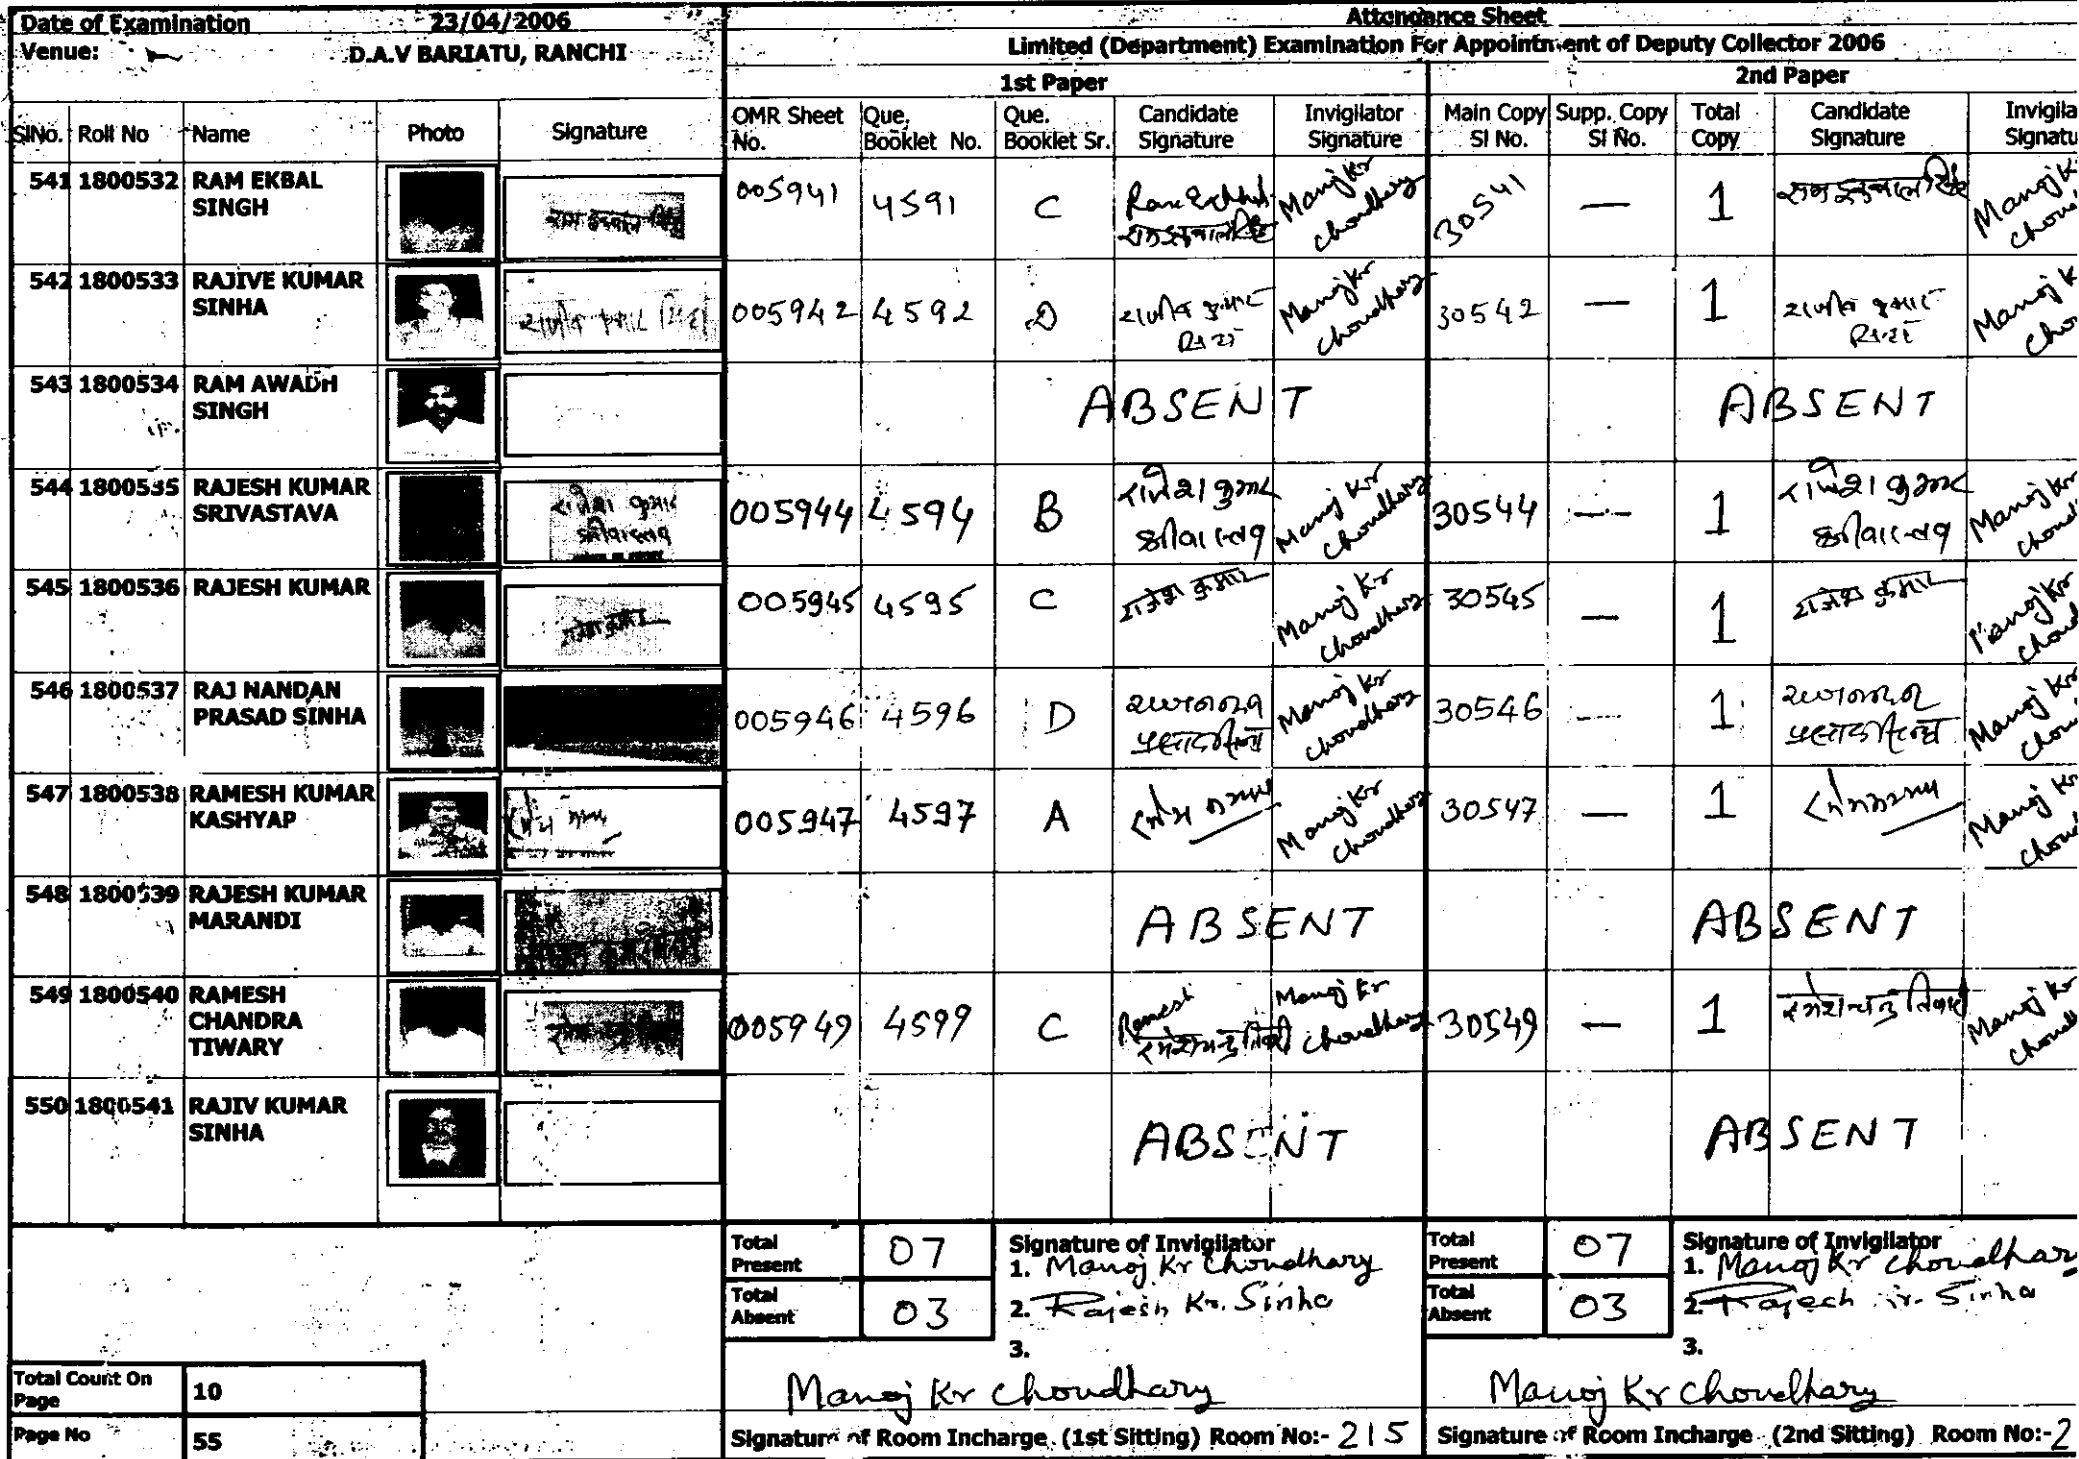 Date of Examination 23/04/2006 Attendance Sheet
Venue: D.A.V BARIATU, RANCHI Limited (Department) Examination For Appointment of Deputy Collector 2006
1st Paper 2nd Paper
SlNo. Roll No Name Photo Signature OMR Sheet No. Que. Booklet No. Que. Booklet Sr. Candidate Signature Invigilator Signature Main Copy Sl No. Supp. Copy Sl No. Total Copy Candidate Signature Invigila Signatu
541 1800532 RAM EKBAL SINGH 005941 4591 C राम इकबाल सिंह Manoj Kr Choudhary 30541 — 1 राम इकबाल सिंह Manoj K Chou
542 1800533 RAJIVE KUMAR SINHA राजीव कुमार सिन्हा 005942 4592 D राजीव कुमार Manoj Kr Choudhary 30542 — 1 राजीव कुमार Manoj K Cho
543 1800534 RAM AWADH SINGH ABSENT ABSENT
544 1800535 RAJESH KUMAR SRIVASTAVA राजेश कुमार श्रीवास्तव 005944 4594 B राजेश कुमार श्रीवास्तव Manoj Kr Choudhary 30544 — 1 राजेश कुमार श्रीवास्तव Manoj Kr Choud
545 1800536 RAJESH KUMAR राजेश कुमार 005945 4595 C राजेश कुमार Manoj Kr Choudhary 30545 — 1 राजेश कुमार Manoj Kr Choud
546 1800537 RAJ NANDAN PRASAD SINHA 005946 4596 D राजनन्दन प्रसाद सिन्हा Manoj Kr Choudhary 30546 — 1 राजनन्दन प्रसाद सिन्हा Manoj Kr Chou
547 1800538 RAMESH KUMAR KASHYAP 005947 4597 A Manoj Kr Choudhary 30547 — 1 Manoj Kr Chou
548 1800539 RAJESH KUMAR MARANDI ABSENT ABSENT
549 1800540 RAMESH CHANDRA TIWARY 005949 4599 C Ramesh रमेश चन्द्र तिवारी Manoj Kr Choudhary 30549 — 1 रमेश चन्द्र तिवारी Manoj Kr Choud
550 1800541 RAJIV KUMAR SINHA ABSENT ABSENT
Total Present 07 Signature of Invigilator Total Present 07 Signature of Invigilator
1. Manoj Kr Choudhary 1. Manoj Kr Choudhar
Total Absent 03 2. Rajesh Kr. Sinha Total Absent 03 2. Rajesh Kr. Sinha
3. 3.
Total Count On Page 10 Manoj Kr Choudhary Manoj Kr Choudhary
Page No 55 Signature of Room Incharge (1st Sitting) Room No:- 215 Signature of Room Incharge (2nd Sitting) Room No:-2